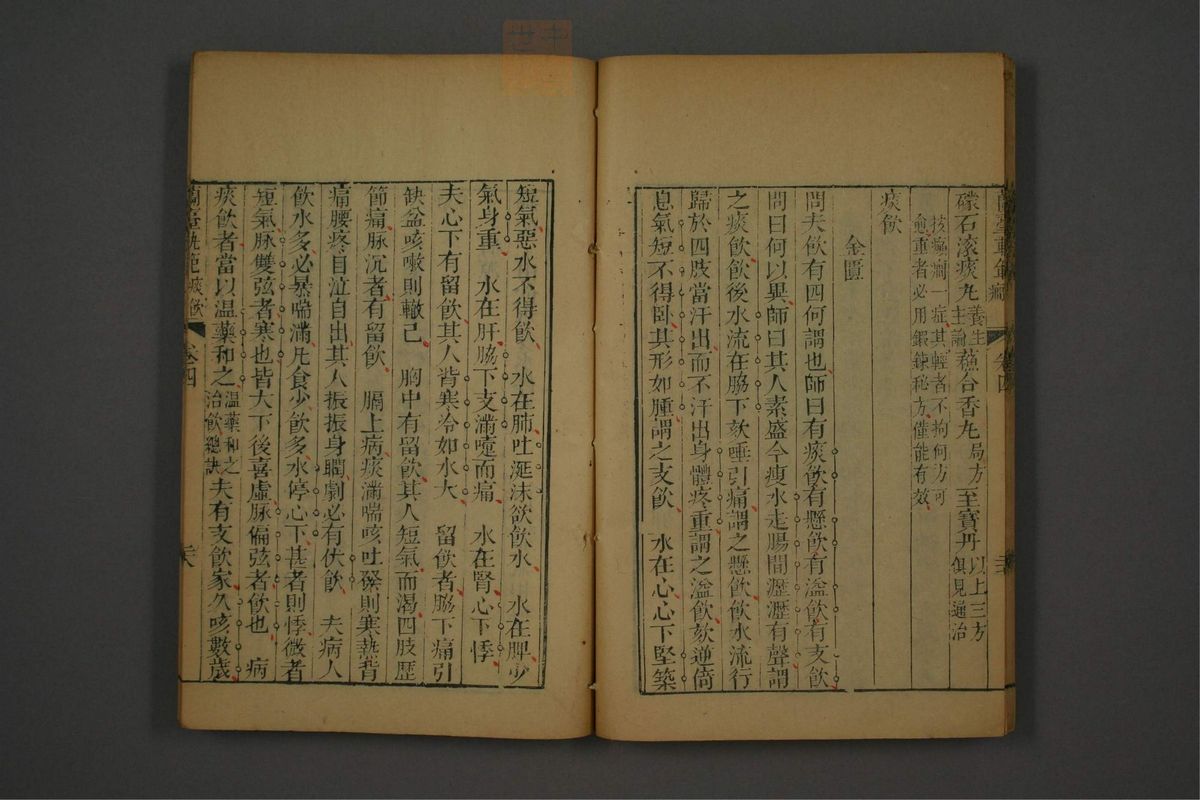 礞石滾痰丸養生主論 蘇合香丸局方 至寶丹以上三方俱見通治
按癲癎一症其輕者不拘何方可愈重者必用鍛鍊秘方僅能有效
痰飲
金匱
問夫飲有四何謂也師曰有痰飲有懸飲有溢飲有支飲
問曰何以異師曰其人素盛今瘦水走腸間瀝瀝有聲謂
之痰飲飲後水流在脇下欬唾引痛謂之懸飲飲水流行
歸於四肢當汗出而不汗出身體疼重謂之溢飲欬逆倚
息氣短不得臥其形如腫謂之支飲 水在心心下堅築
短氣惡水不得飲 水在肺吐涎沫欲飲水 水在脾少
氣身重 水在肝脇下支滿嚏而痛 水在腎心下悸
夫心下有留飲其人背寒冷如水大 留飲者脇下痛引
缺盆咳嗽則轍已 胸中有留飲其人短氣而渴四肢歷
節痛脈沉者有留飲 膈上病痰滿喘咳吐發則寒熱背
痛腰疼目泣自出其人振振身瞤劇必有伏飲 夫病人
飲水多必暴喘滿凡食少飲多水停心下甚者則悸微者
短氣脈雙弦者寒也皆大下後喜虛脈偏弦者飲也 病
痰飲者當以温藥和之温藥和之治飲總訣 夫有支飲家久咳數歲
蘭臺軌範 痰飲 卷四